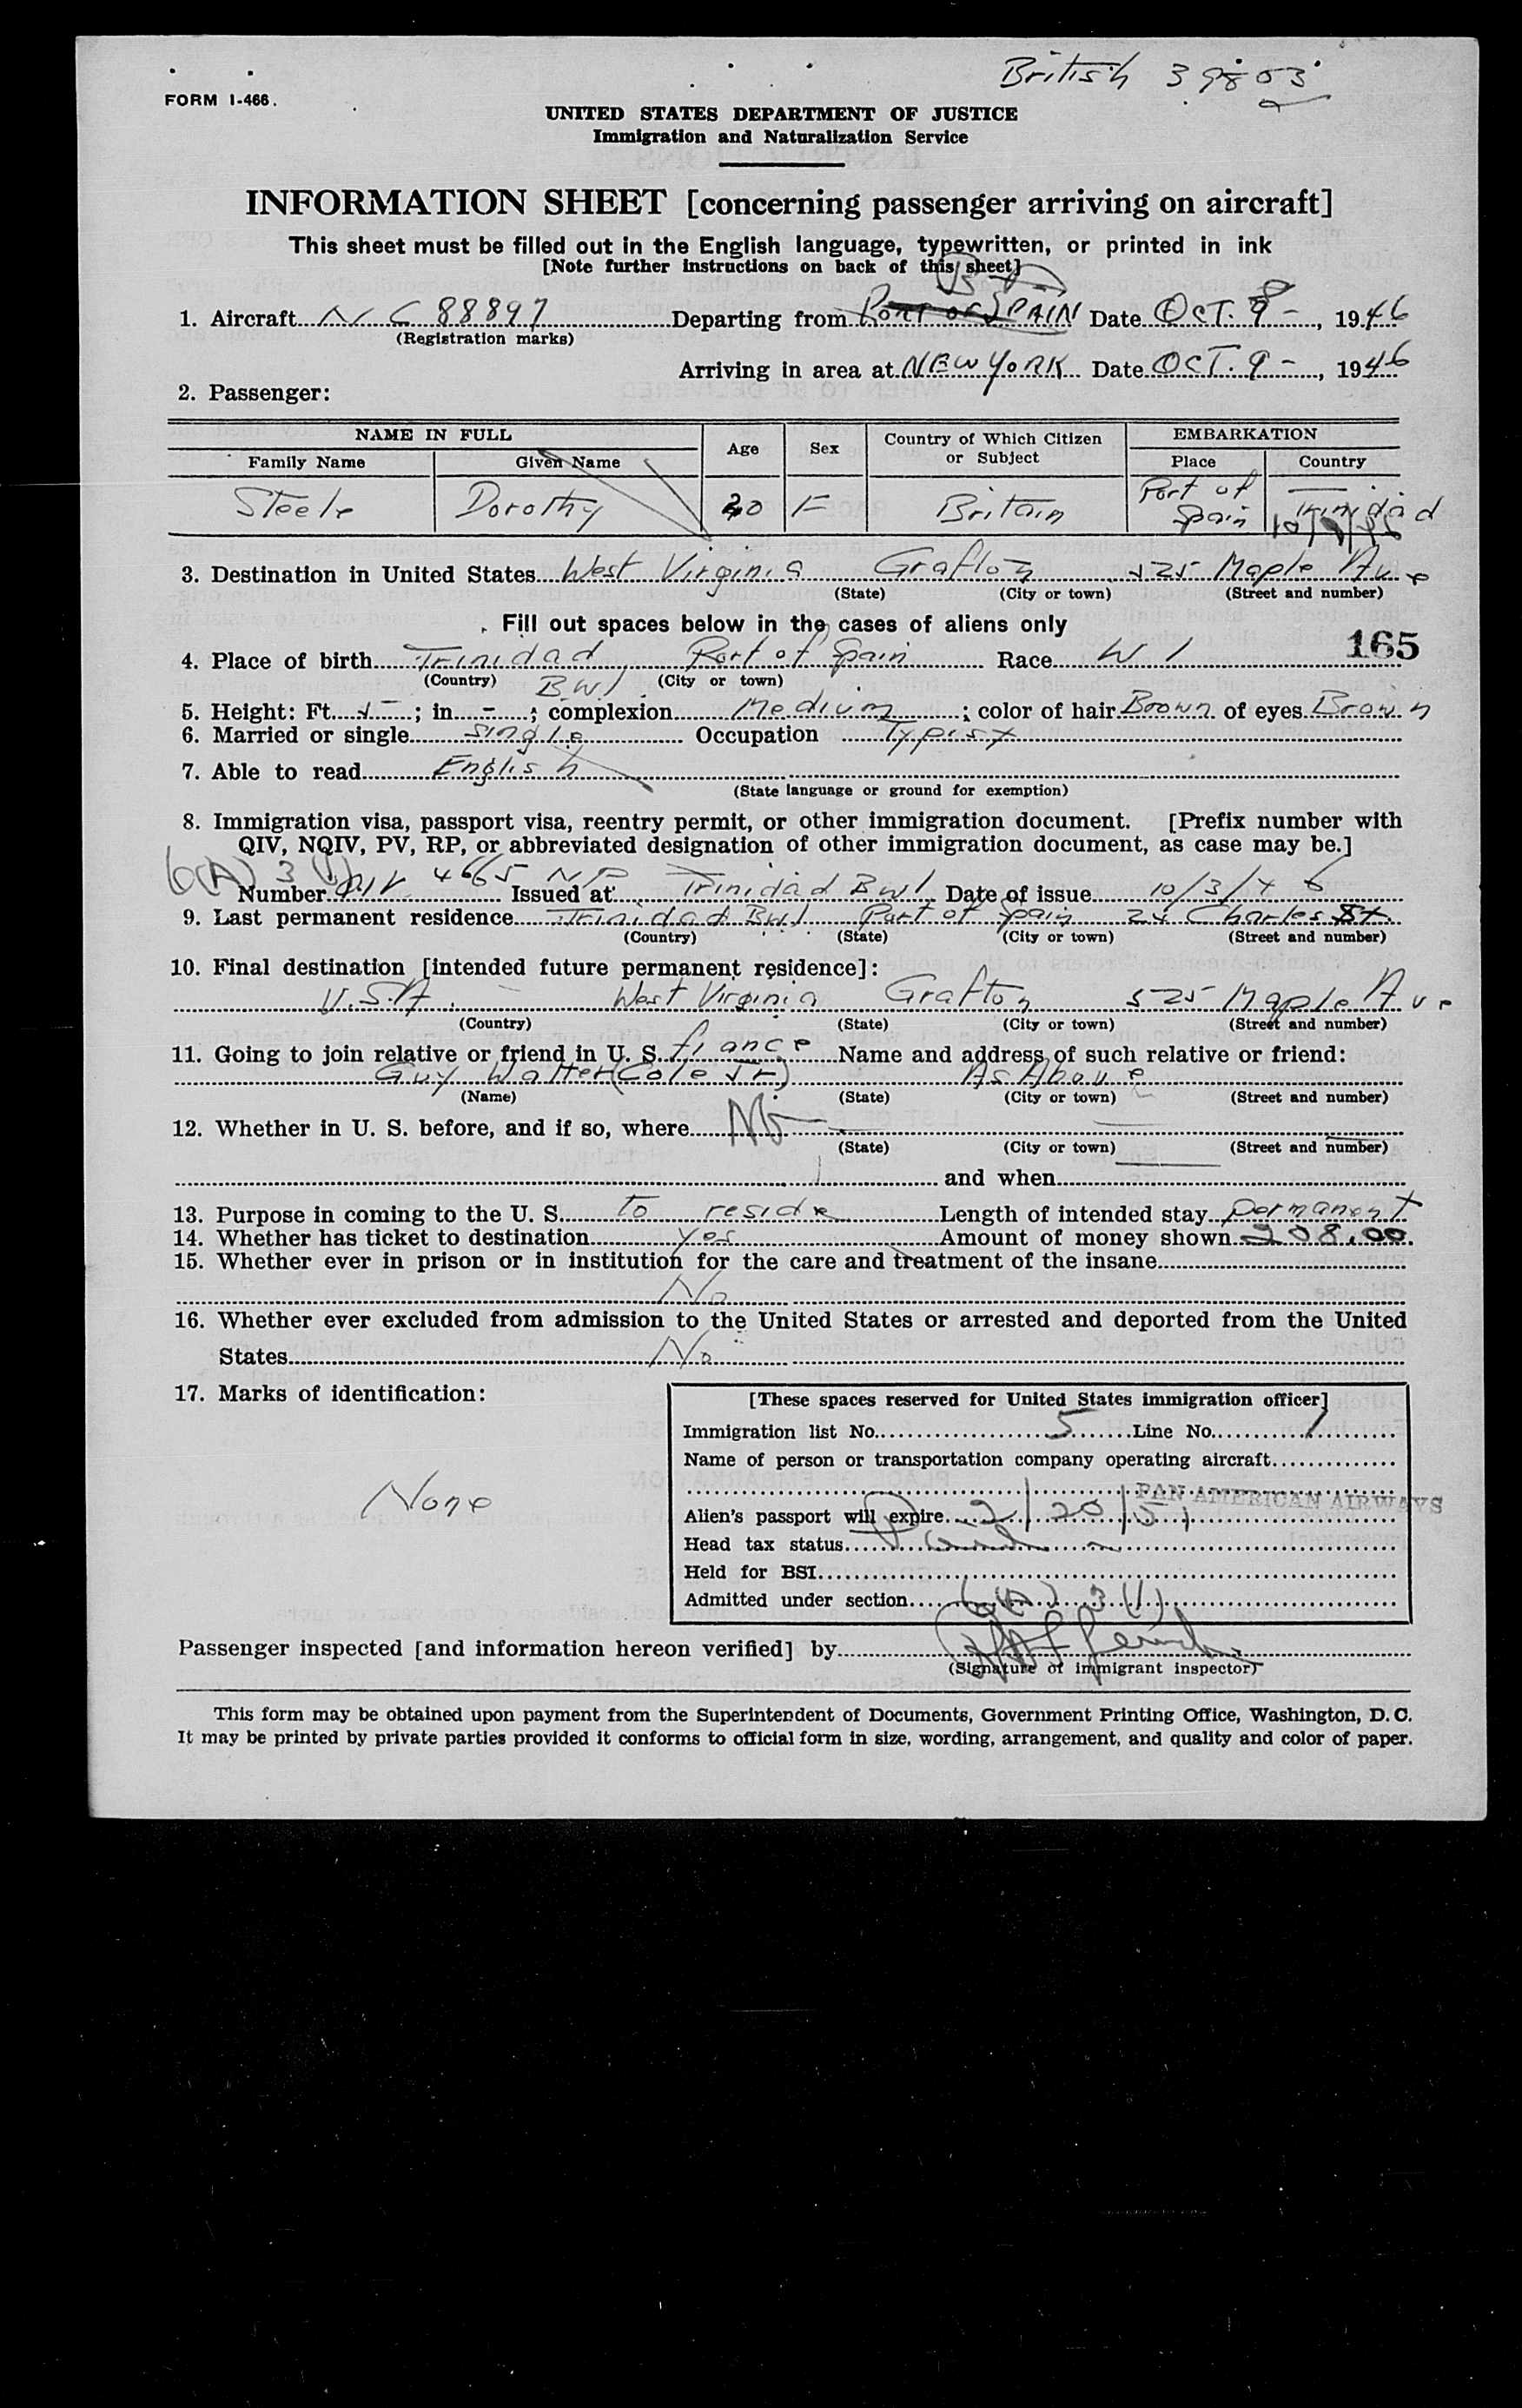 British 39803
FORM I-466.
UNITED STATES DEPARTMENT OF JUSTICE
Immigration and Naturalization Service
INFORMATION SHEET [concerning passenger arriving on aircraft]
This sheet must be filled out in the English language, typewritten, or printed in ink
[Note further instructions on back of this sheet]
1. Aircraft NC 88897 Departing from PORT OF SPAIN Date OCT. 9 -, 1946
(Registration marks)
Arriving in area at NEW YORK Date OCT. 9 -, 1946
2. Passenger:
NAME IN FULL Age Sex Country of Which Citizen or Subject EMBARKATION
Family Name Given Name Place Country
Steele Dorothy 20 F Britain Port of Spain Trinidad
3. Destination in United States West Virginia Grafton 525 Maple Ave
(State) (City or town) (Street and number)
Fill out spaces below in the cases of aliens only
4. Place of birth Trinidad Port of Spain Race W I 165
(Country) BWI (City or town)
5. Height: Ft. 5 ; in. - ; complexion Medium ; color of hair Brown of eyes Brown
6. Married or single Single Occupation Typist
7. Able to read English
(State language or ground for exemption)
8. Immigration visa, passport visa, reentry permit, or other immigration document. [Prefix number with
QIV, NQIV, PV, RP, or abbreviated designation of other immigration document, as case may be.]
6(A) 3 (1)
Number QIV 4665 Issued at Trinidad BWI Date of issue 10/3/46
9. Last permanent residence Trinidad BWI Port of Spain 24 Charles St.
(Country) (State) (City or town) (Street and number)
10. Final destination [intended future permanent residence]:
U.S.A. West Virginia Grafton 525 Maple Ave
(Country) (State) (City or town) (Street and number)
11. Going to join relative or friend in U. S. fiance Name and address of such relative or friend:
Guy Walter (Cole Jr) As Above
(Name) (State) (City or town) (Street and number)
12. Whether in U. S. before, and if so, where No
(State) (City or town) (Street and number)
and when
13. Purpose in coming to the U. S. to reside Length of intended stay permanent
14. Whether has ticket to destination yes Amount of money shown 208.00.
15. Whether ever in prison or in institution for the care and treatment of the insane
No
16. Whether ever excluded from admission to the United States or arrested and deported from the United
States No
17. Marks of identification:
None
[These spaces reserved for United States immigration officer]
Immigration list No. 5 Line No. 1
Name of person or transportation company operating aircraft
PAN AMERICAN AIRWAYS
Alien's passport will expire 2/20/51
Head tax status Paid
Held for BSI
Admitted under section 6(A) 3 (1)
Passenger inspected [and information hereon verified] by
(Signature of immigrant inspector)
This form may be obtained upon payment from the Superintendent of Documents, Government Printing Office, Washington, D. C.
It may be printed by private parties provided it conforms to official form in size, wording, arrangement, and quality and color of paper.